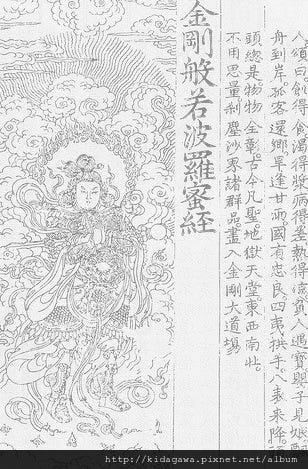 頌曰飢得食渴得漿病得差熱得涼貧遇寶嬰子見娘飄
舟到岸孤客還鄉旱逢甘雨國有忠良四夷拱手八表來降頭
頭總是物物全彰古今凡聖地獄天堂東西南北
不用思量剎塵沙界諸群品盡入金剛大道場
金剛般若波羅蜜經
http://kidagawa.pixnet.net/album